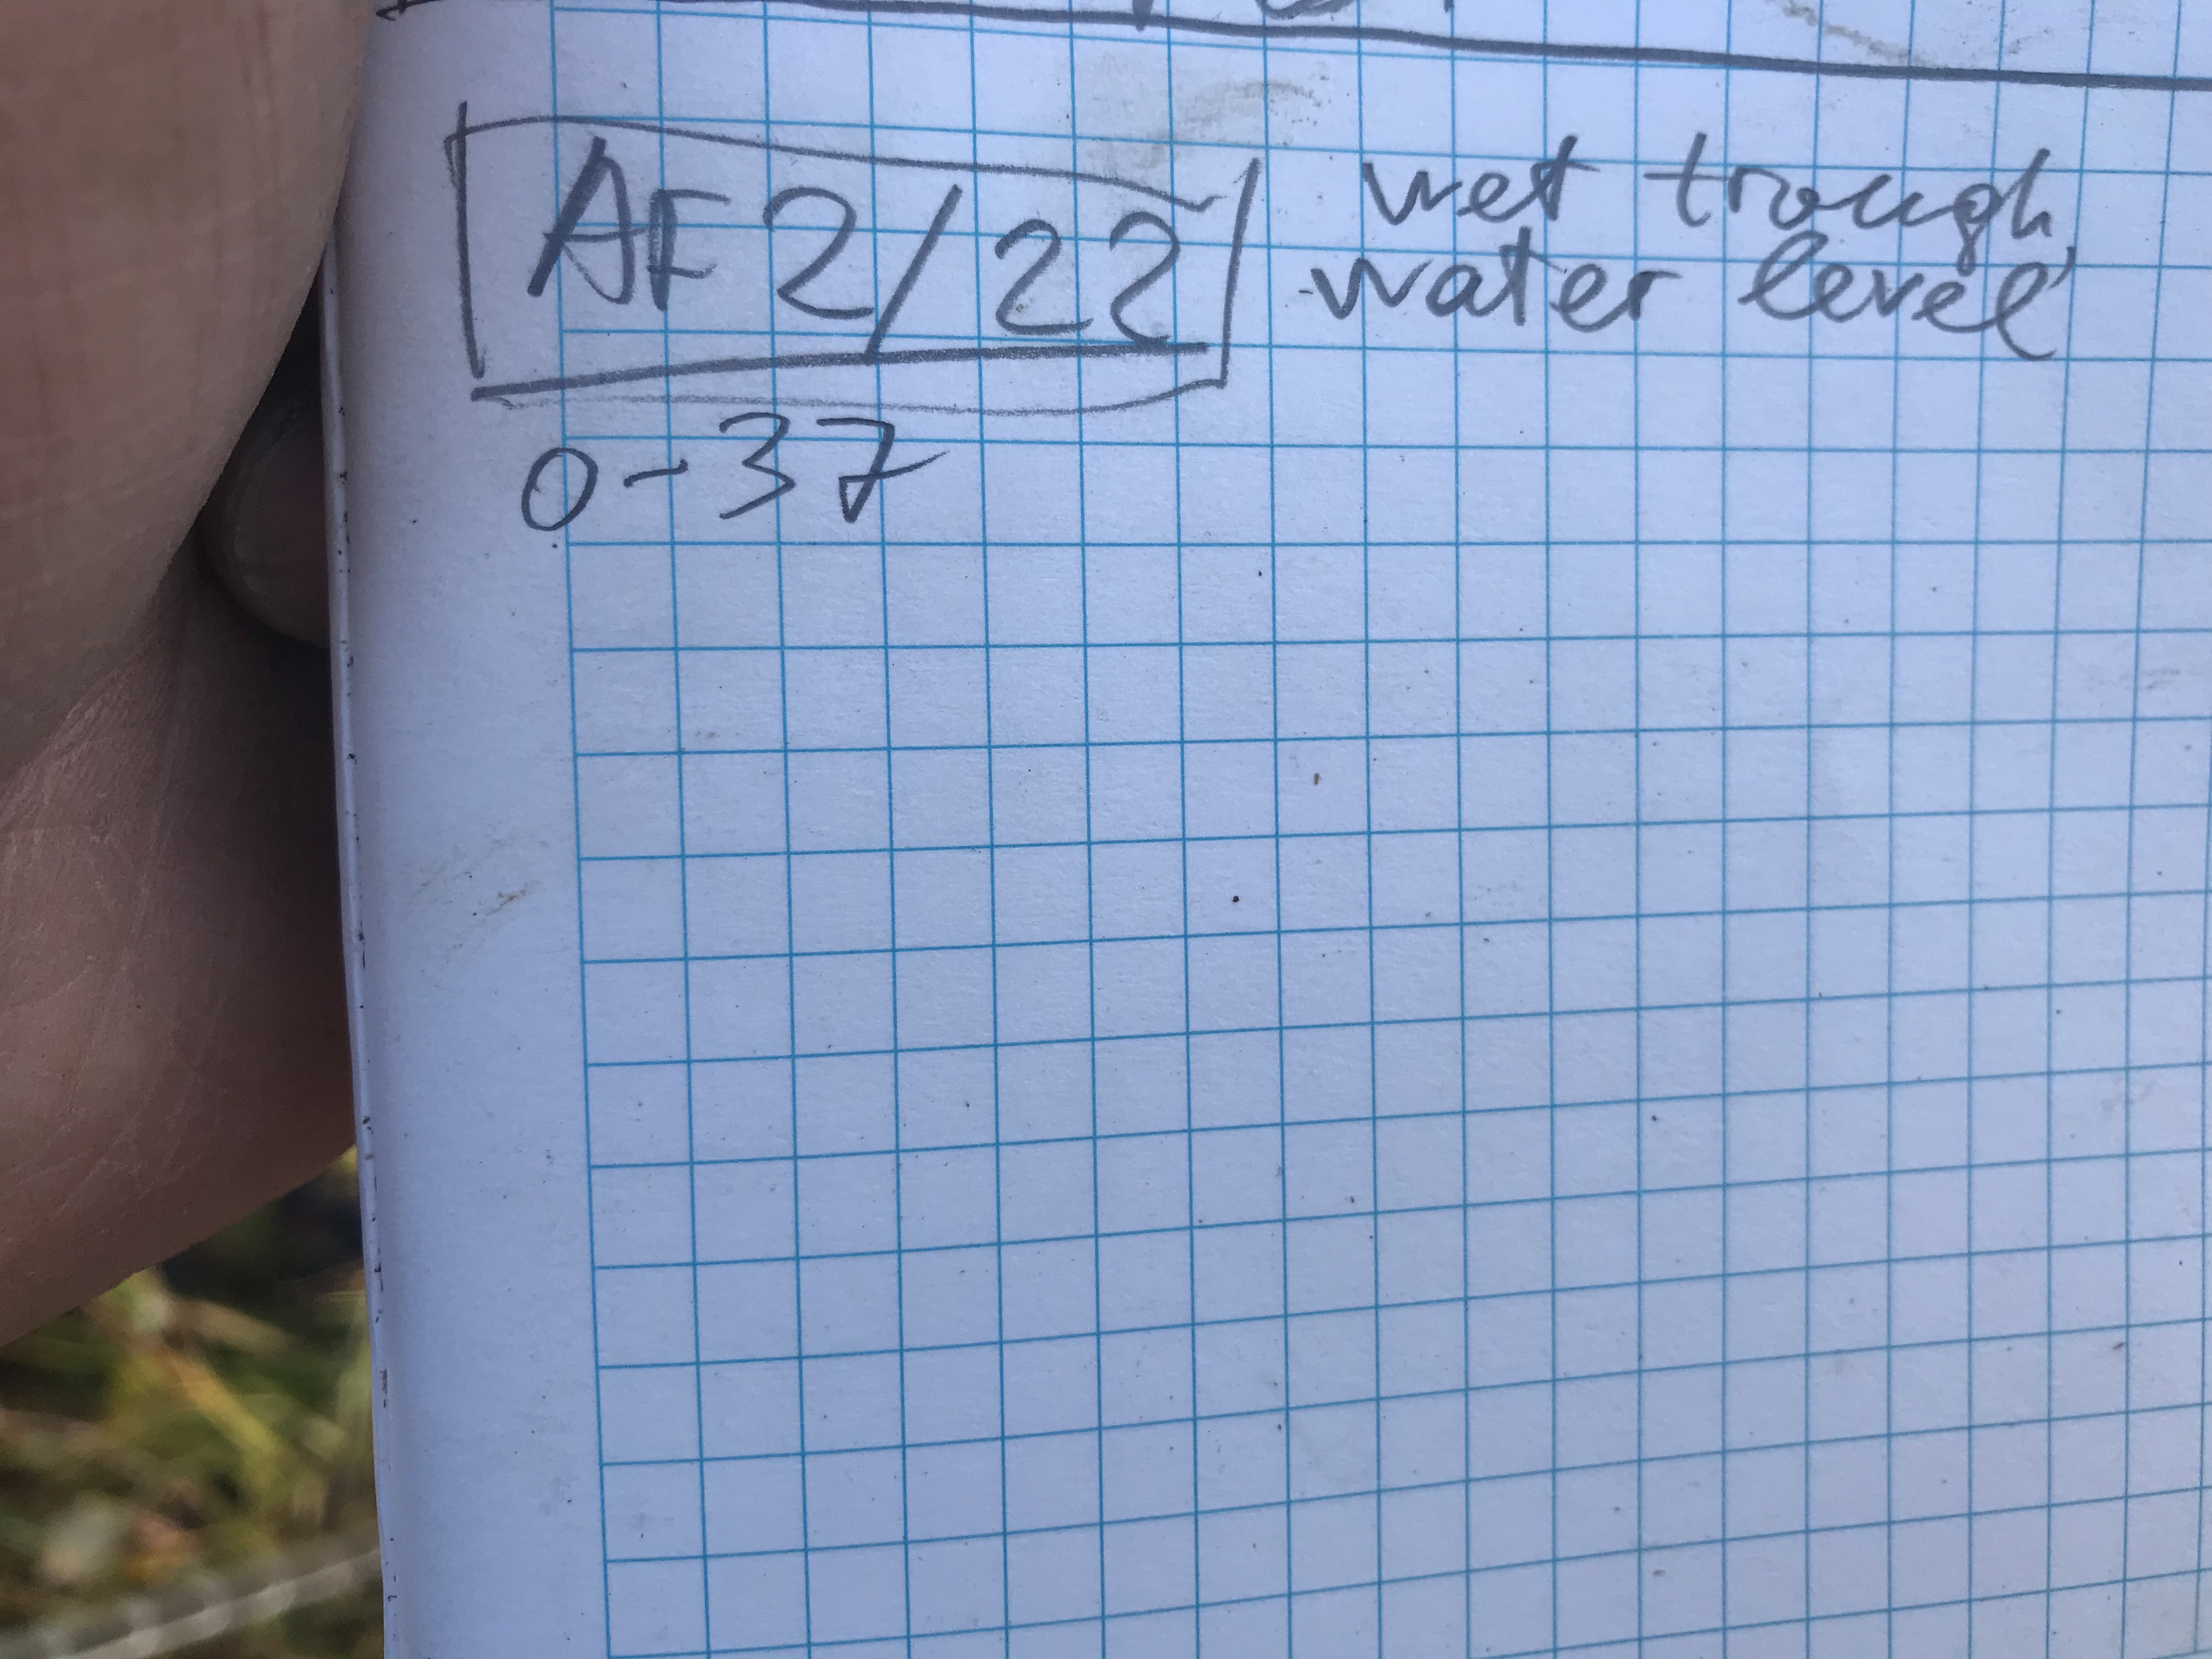 AF2/22 wet trough,
water level
0-37